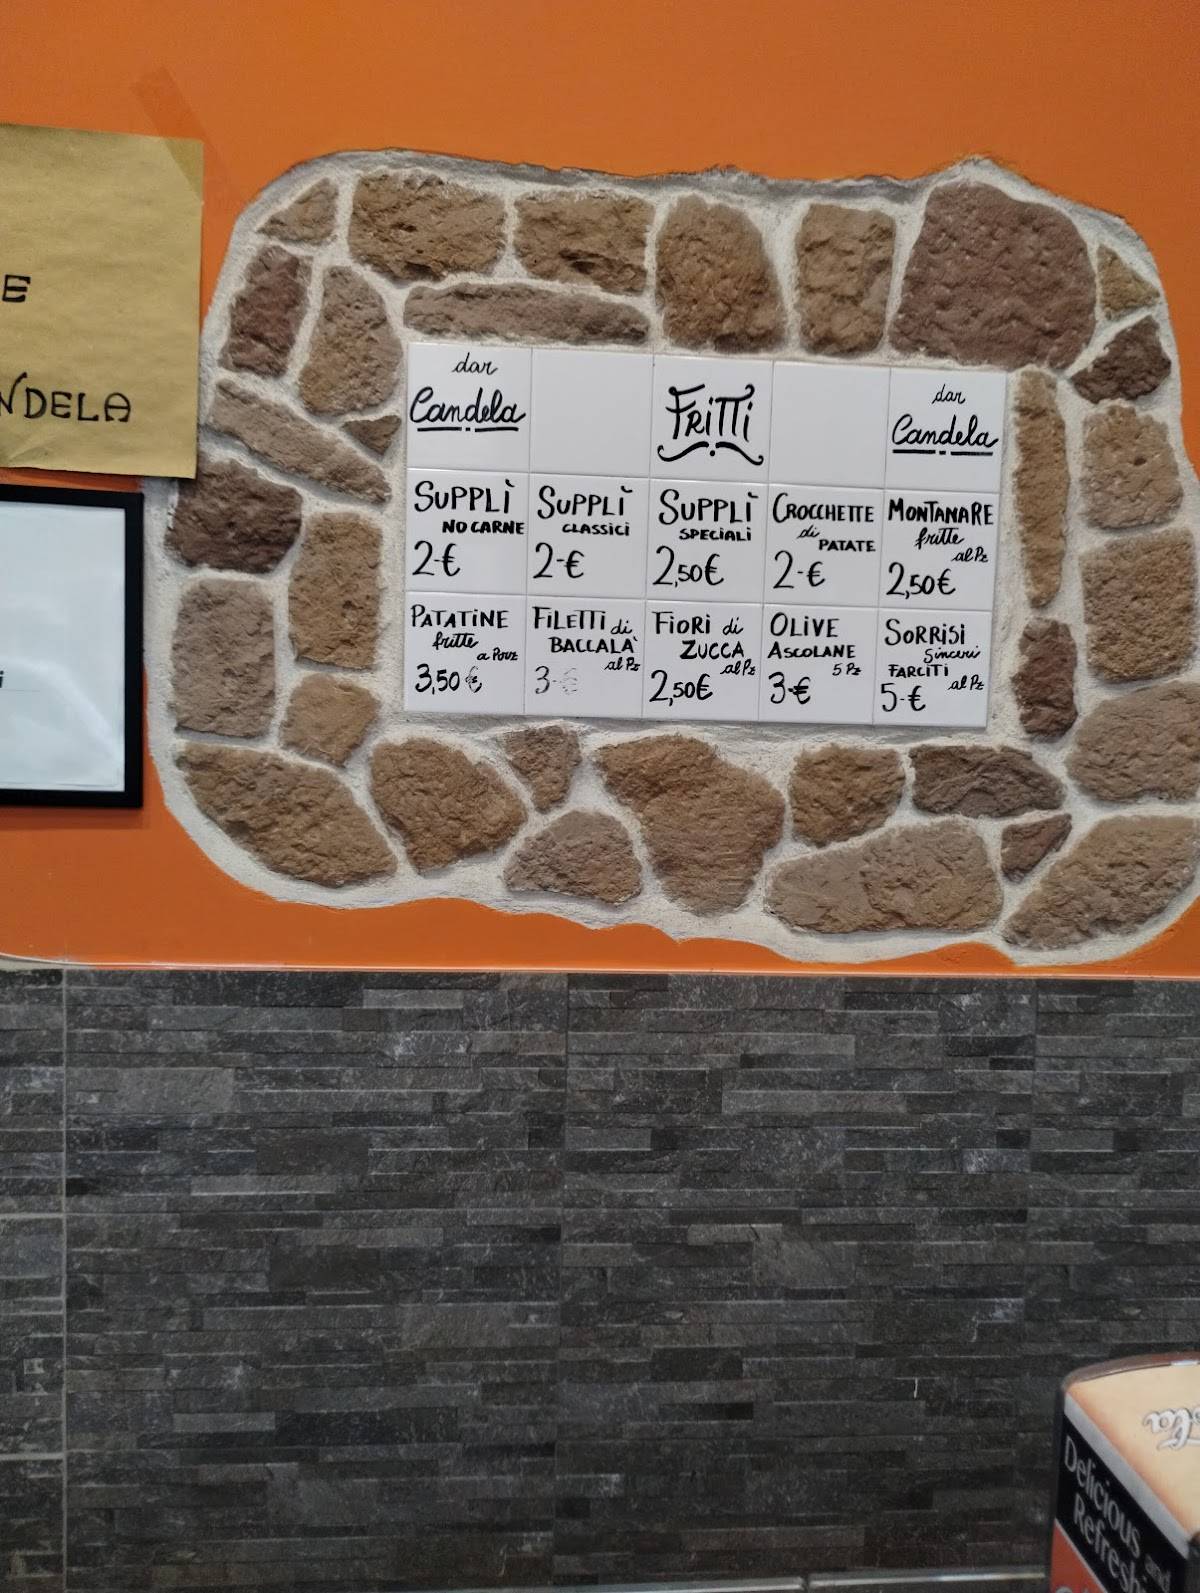 E
NDELA
i
dar
Candela
FRiTTi
dar
Candela
SUPPLÌ
NO CARNE
2-€
SUPPLÌ
CLASSICI
2-€
SUPPLÌ
SPECiALi
2,50€
CROCCHETTE
di
PATATE
2-€
MONTANARE
fritte
al Pz
2,50€
PATATiNE
fritte
a Porz
3,50€
FiLETTi di
BACCALÀ
al Pz
3-€
FiORi di
ZUCCA
al Pz
2,50€
OLiVE
ASCOLANE
5 Pz
3-€
SORRiSi
Sinceri
FARCiTi
al Pz
5-€
Delicious and